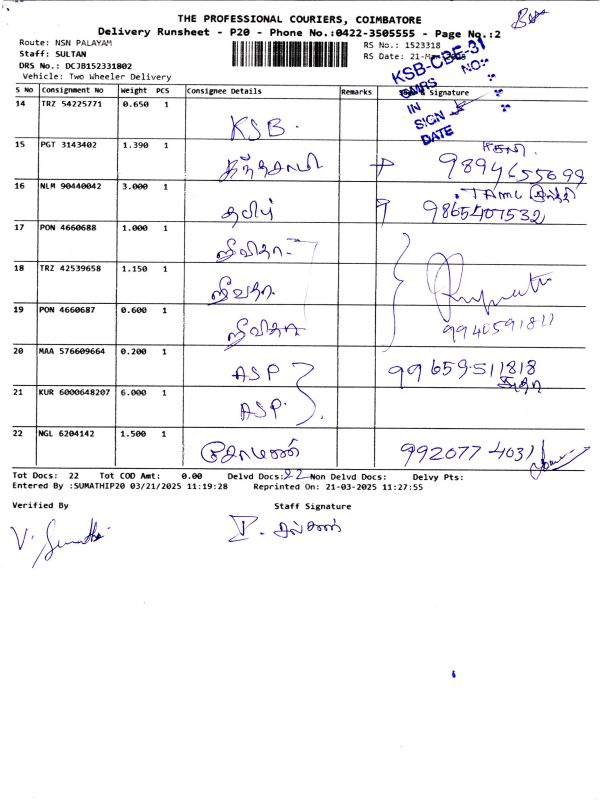 THE PROFESSIONAL COURIERS, COIMBATORE
Delivery Runsheet - P20 - Phone No.:0422-3505555 - Page No.:2
Route: NSN PALAYAM
RS No.: 1523318
Staff: SULTAN
RS Date: 21-Mar
DRS No.: DCJB152331802
Vehicle: Two Wheeler Delivery
KSB-CBE-31
NO:
GMRS
IN
SIGN
DATE
S No Consignment No Weight PCS Consignee Details Remarks Signature
14 TRZ 54225771 0.650 1 KSB.
15 PGT 3143402 1.390 1 கந்தசாமி 9894655099
16 NLM 90440042 3.000 1 தமிழ் TAMIL 9865407532
17 PON 4660688 1.000 1 ஜீவிதா
18 TRZ 42539658 1.150 1 ஜீவிதா
19 PON 4660687 0.600 1 ஜீவிதா 9940591811
20 MAA 576609664 0.200 1 ASP 99659511818
சுதா
21 KUR 6000648207 6.000 1 ASP.
22 NGL 6204142 1.500 1 992077 4031
Tot Docs: 22 Tot COD Amt: 0.00 Delvd Docs: 22 Non Delvd Docs: Delvy Pts:
Entered By :SUMATHIP20 03/21/2025 11:19:28 Reprinted On: 21-03-2025 11:27:55
Verified By Staff Signature